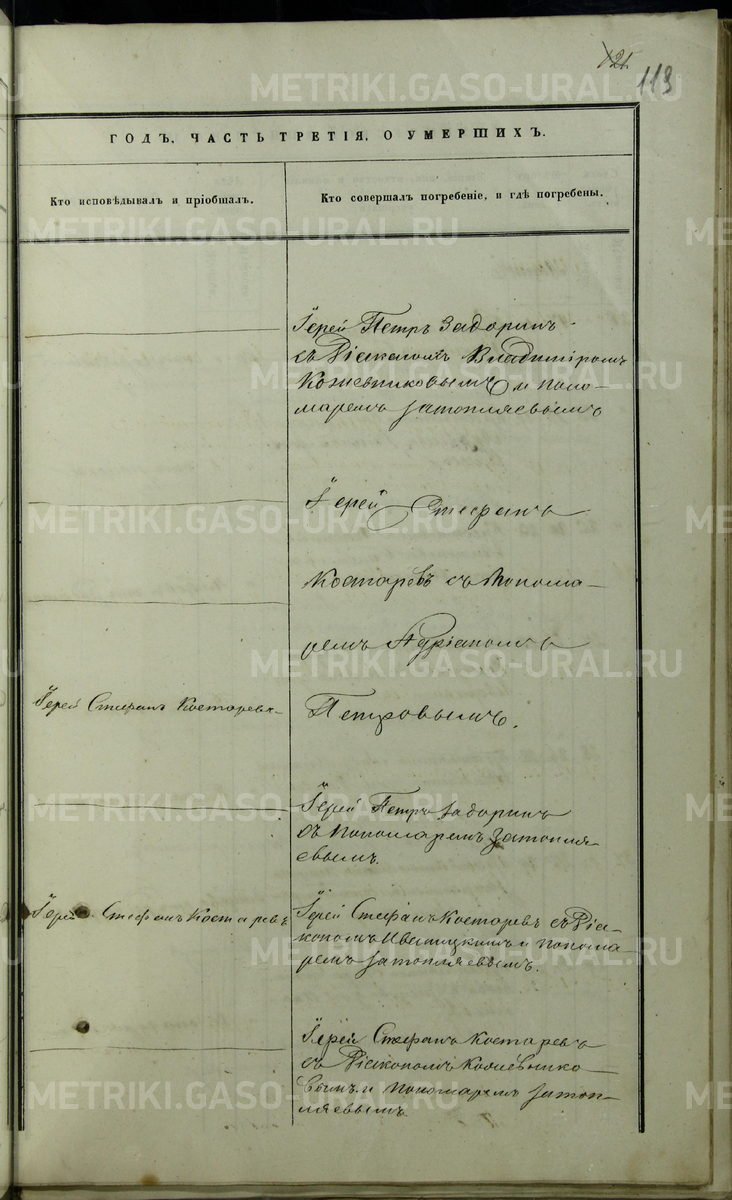 121
113
ГОДЪ, ЧАСТЬ ТРЕТІЯ, О УМЕРШИХЪ.
Кто исповѣдывалъ и пріобщалъ.
Кто совершалъ погребеніе, и гдѣ погребены.
Іерей Петръ Задоринъ
съ Діакономъ Владиміромъ
Кожевниковымъ и поно-
маремъ Затопляевымъ
Іерей Стефанъ
Костаревъ съ Понома-
ремъ Андріаномъ
Петровымъ.
Іерей Стефанъ Костаревъ
Іерей Петръ Задоринъ
съ Пономаремъ Затопля-
евымъ.
Іерей Стефанъ Костаревъ
Іерей Стефанъ Костаревъ съ Діа-
кономъ Ивановскимъ и понома-
ремъ Затопляевымъ.
Іерей Стефанъ Костаревъ
съ Діакономъ Кожевнико-
вымъ и Пономаремъ Затоп-
ляевымъ
METRIKI.GASO-URAL.RU